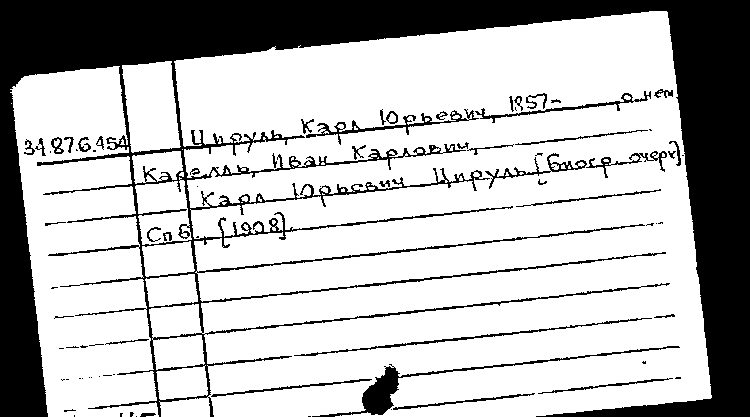 34.87.6.454 Цируль, Карл Юрьевич, 1857- , о нем
Карелль, Иван Карлович,
Карл Юрьевич Цируль [биогр. очерк]
Спб., [1908].